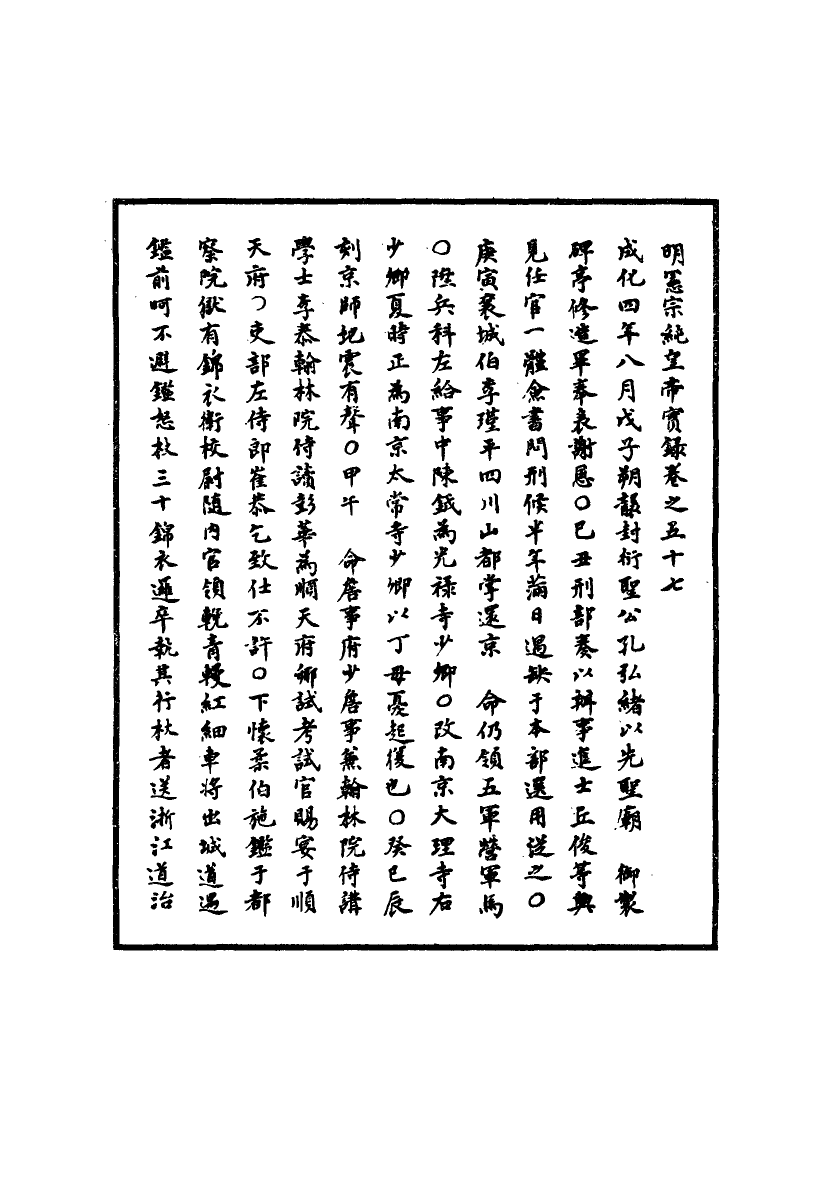 明憲宗純皇帝實録卷之五十七
成化四年八月戊子朔襲封衍聖公孔弘緒以先聖廟　御製
碑亭修造畢奉表謝恩○己丑刑部奏以辦事進士丘俊等與
見任官一體僉書問刑候半年滿日遇缺于本部選用從之○
庚寅襄城伯李瑾平四川山都掌還京　命仍領五軍營軍馬
○陞兵科左給事中陳鉞為光禄寺少卿○改南京大理寺右
少卿夏時正為南京太常寺少卿以丁母憂起復也○癸巳辰
刻京師地震有聲○甲午　命詹事府少詹事兼翰林院侍講
學士李泰翰林院侍讀彭華為順天府鄉試考試官賜宴于順
天府○吏部左侍郎崔恭乞致仕不許○下懷柔伯施鑑于都
察院獄有錦衣衛校尉随内官領輓青幔紅細車将出城道遇
鑑前呵不避鑑怒杖三十錦衣邏卒執其行杖者送浙江道治